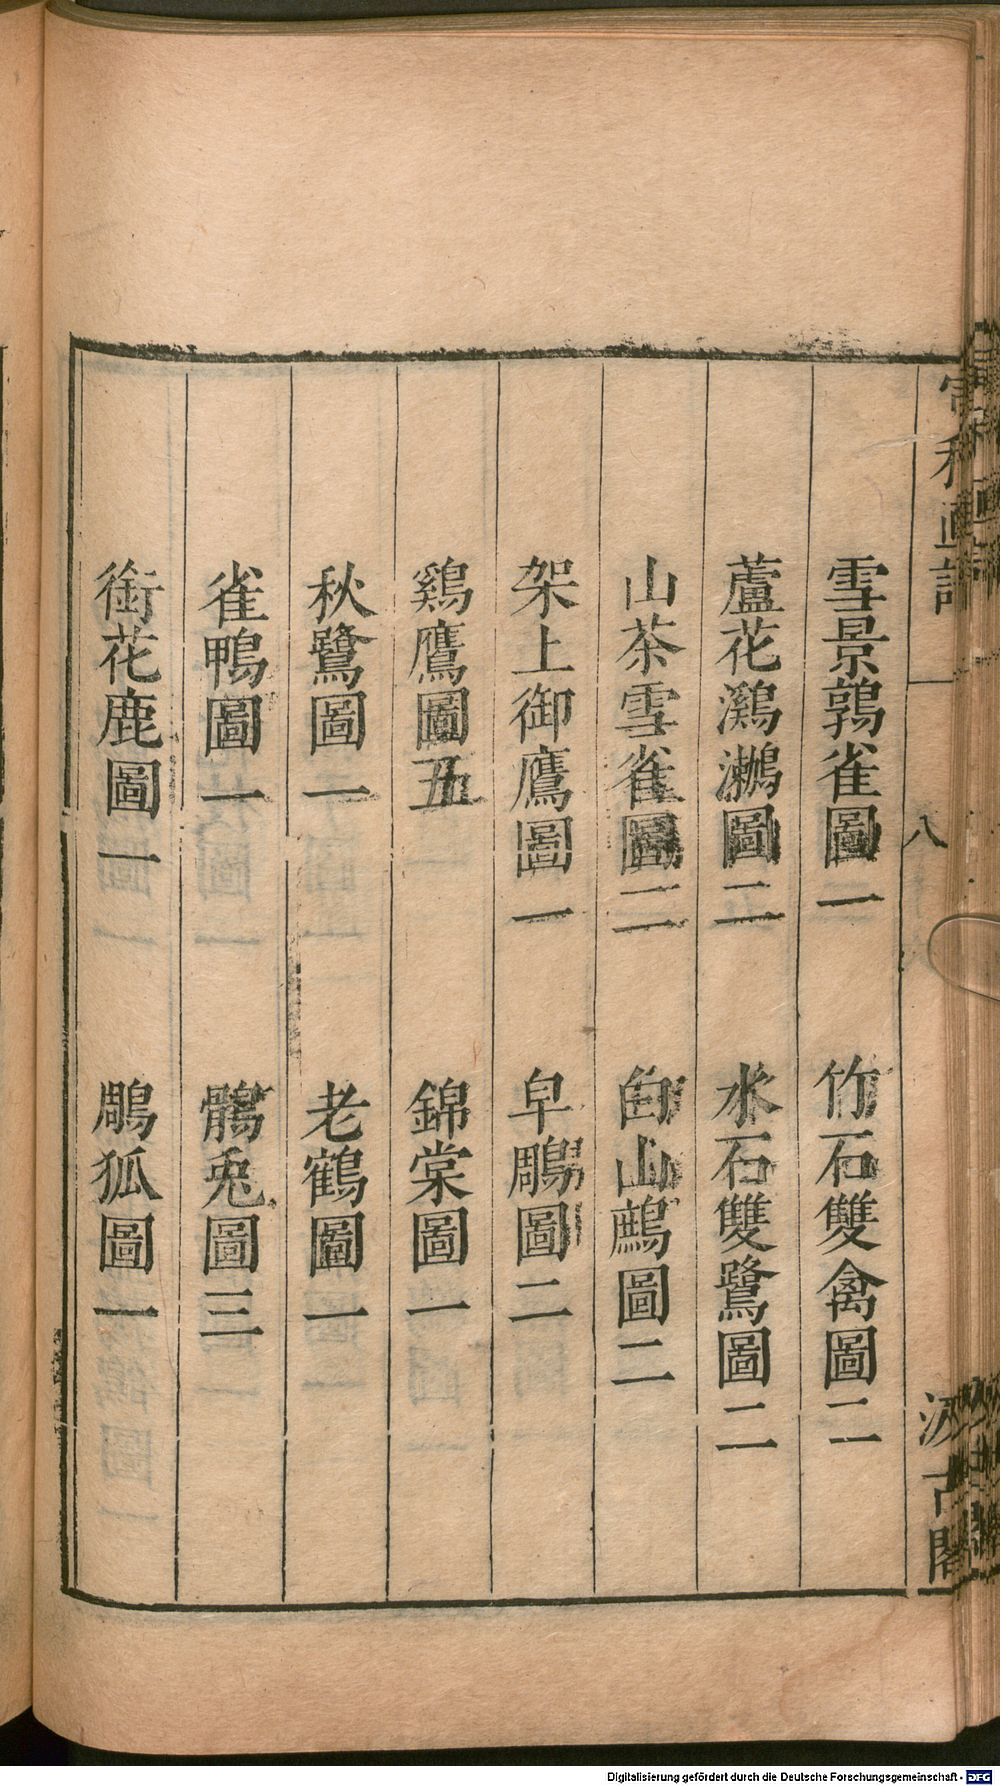 雪景鶉雀圖一 竹石雙禽圖二
蘆花鸂鷘圖二 水石雙鷺圖二
山茶雪雀圖二 白山鷓圖二
架上御鷹圖一 皁鵰圖二
鷄鷹圖五 錦棠圖一
秋鷺圖一 老鶴圖一
雀鴨圖一 鶻兎圖三
銜花鹿圖一 鵰狐圖一
八
汲古閣
Digitalisierung gefördert durch die Deutsche Forschungsgemeinschaft - DFG